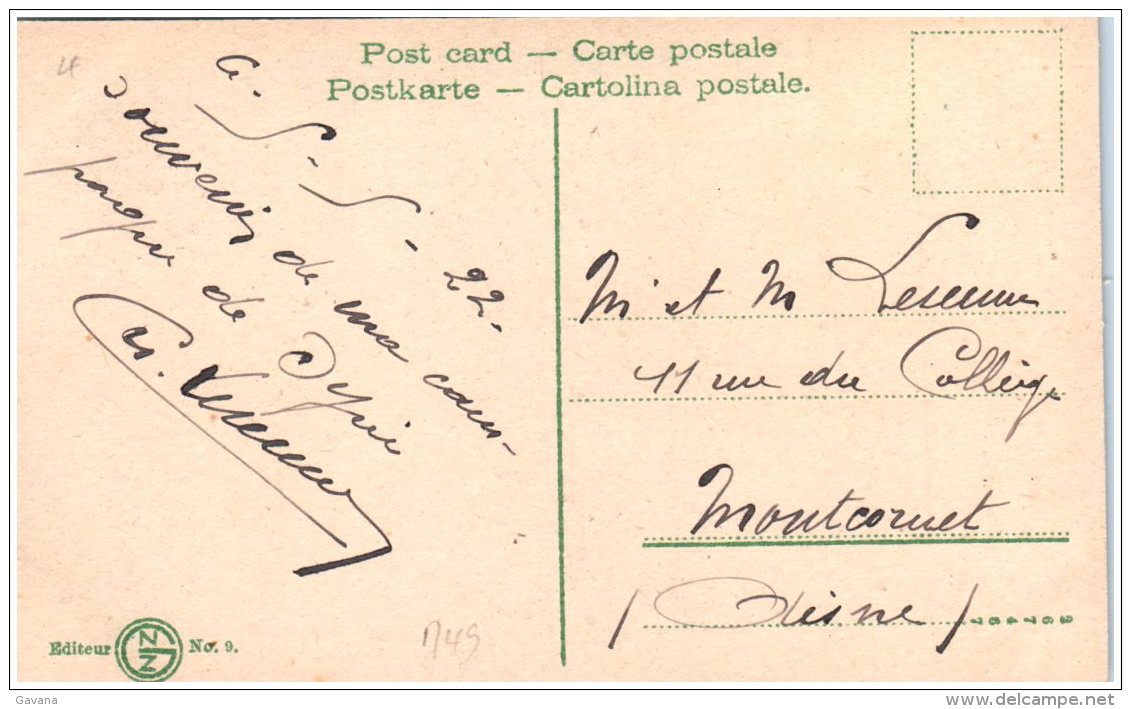 Post card — Carte postale
Postkarte — Cartolina postale.
4
G. S-S-22-
Souvenir de ma cam-
pagne de Syrie
M et M
11 rue du Collège
Montcornet
/ Aisne /
367467
Editeur No. 9.
1749
Gavana
www.delcampe.net